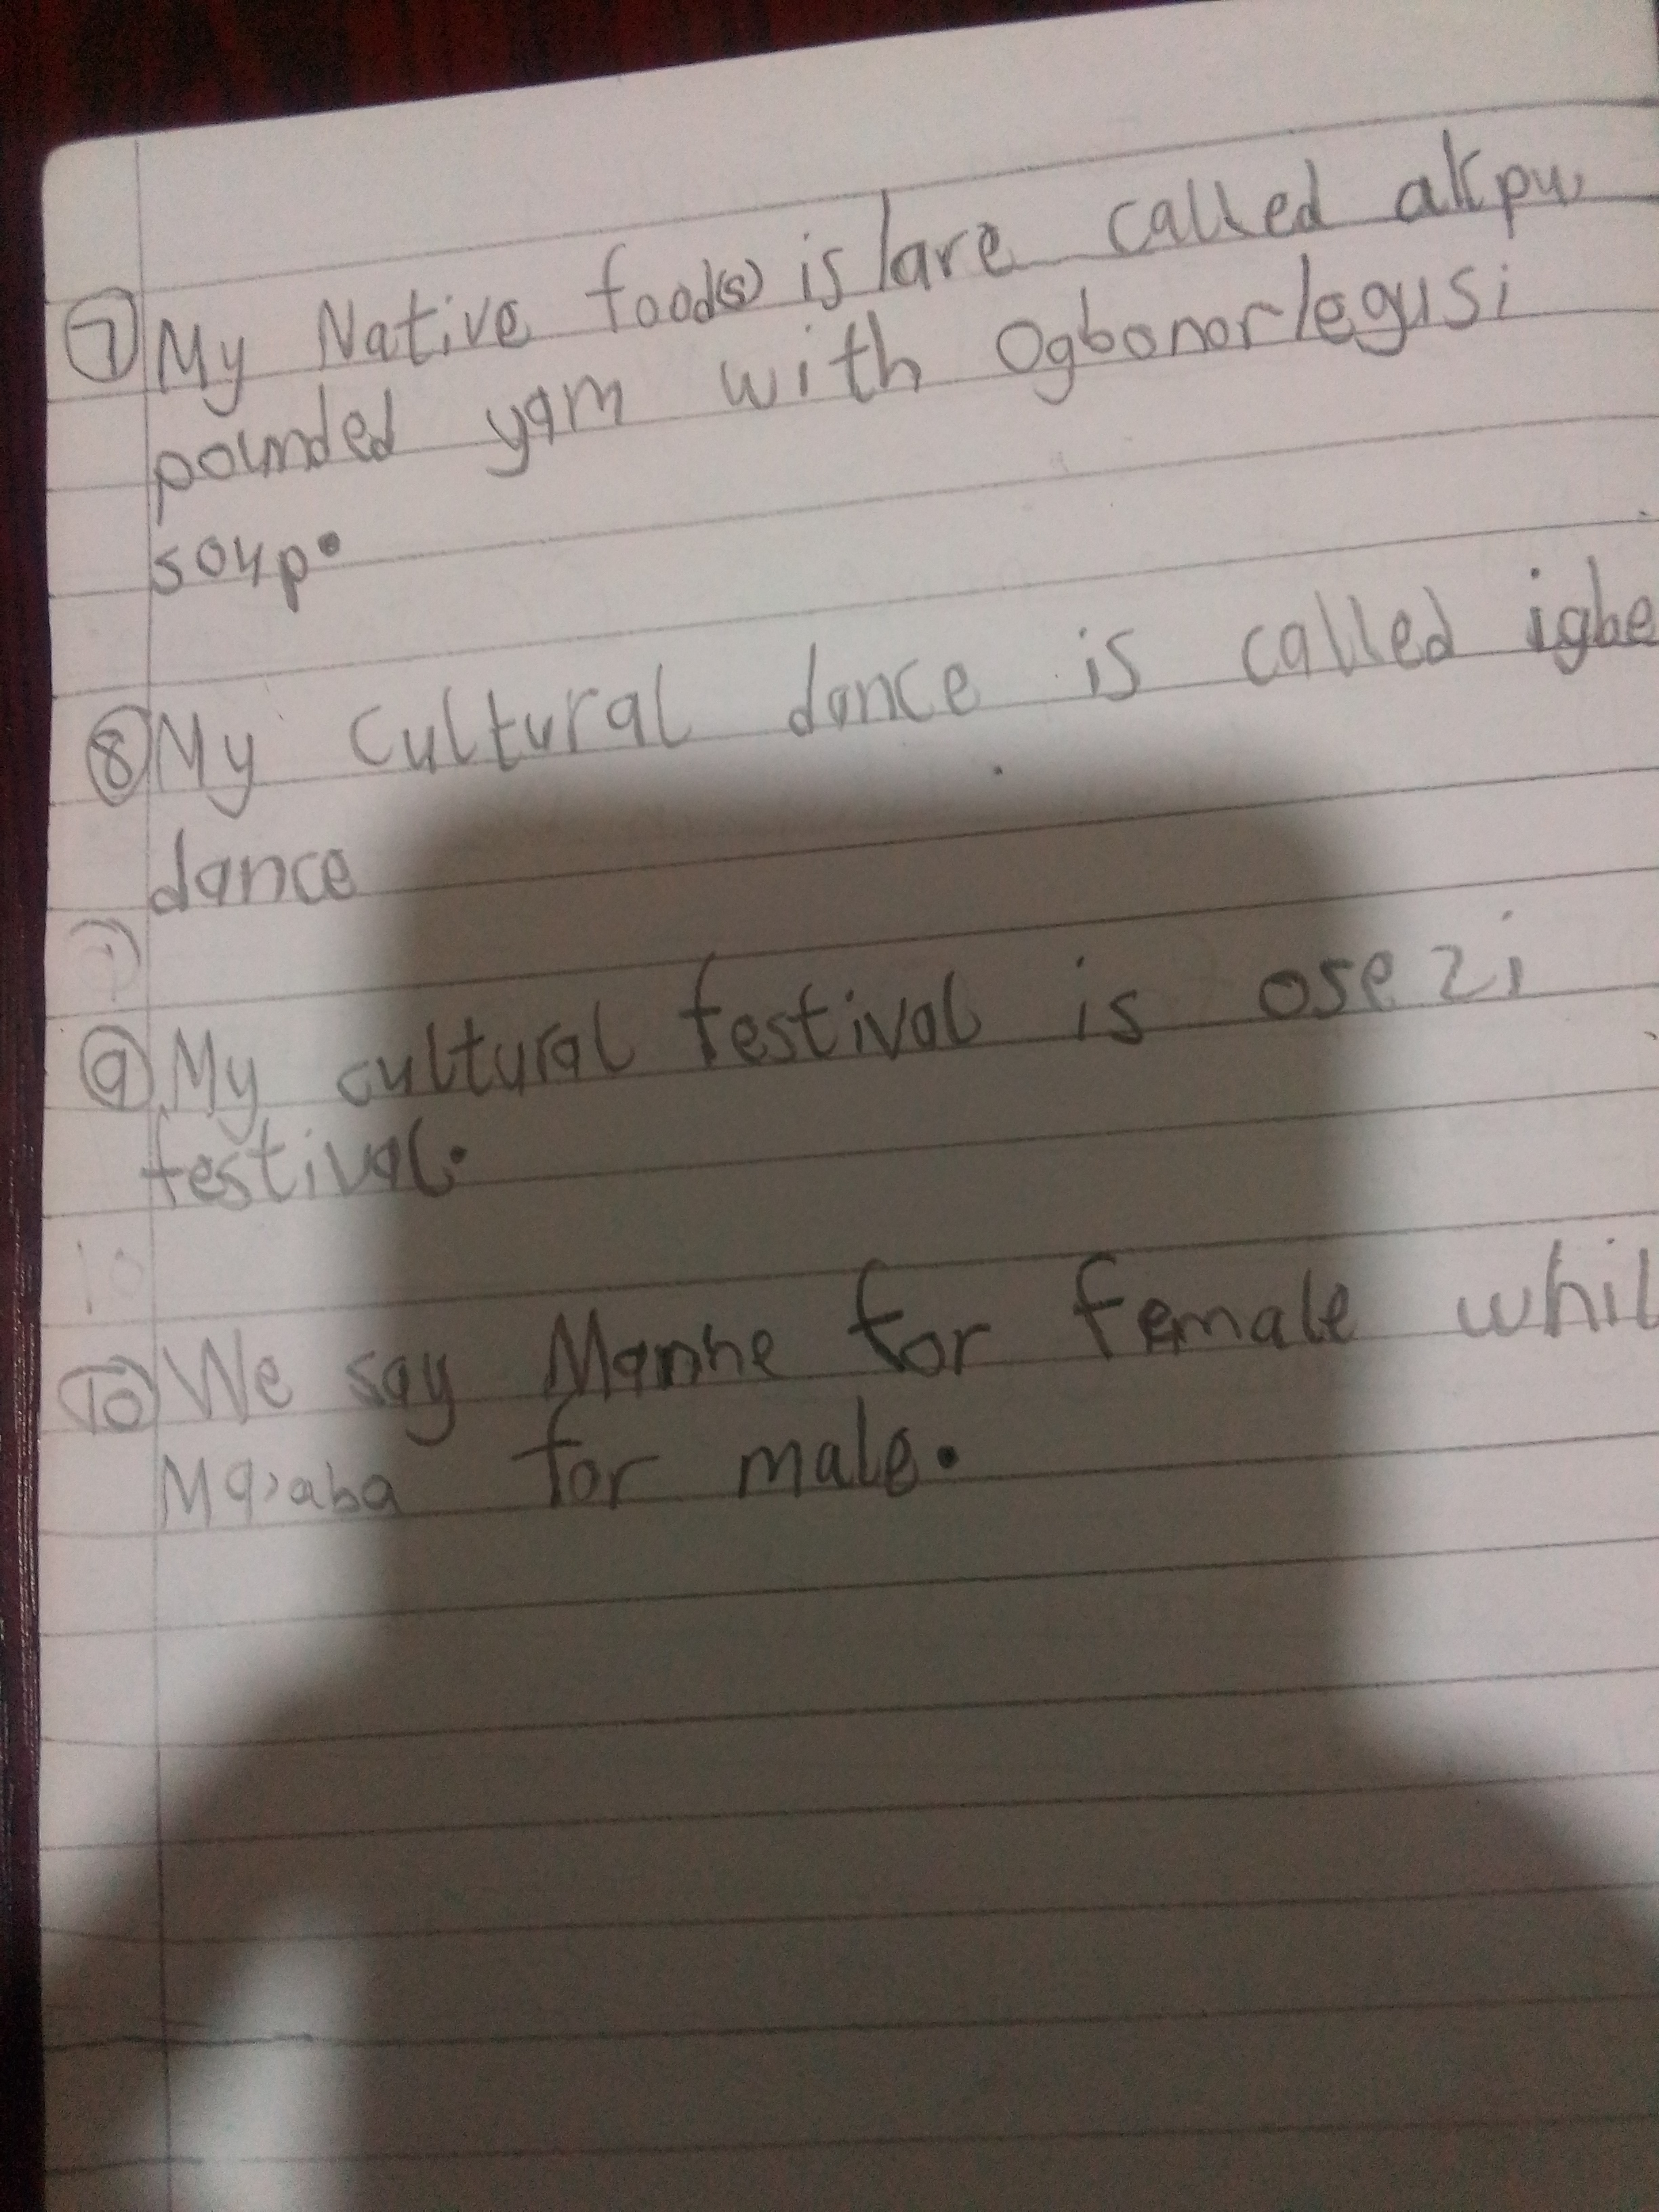 ⑦ My Native food(s) is/are called akpu,
pounded yam with Ogbonor/egusi
soup.
⑧ My cultural dance is called igbe
dance
⑨ My cultural festival is osezi
festival.
10
⑩ We say Manhe for female whil
for male.